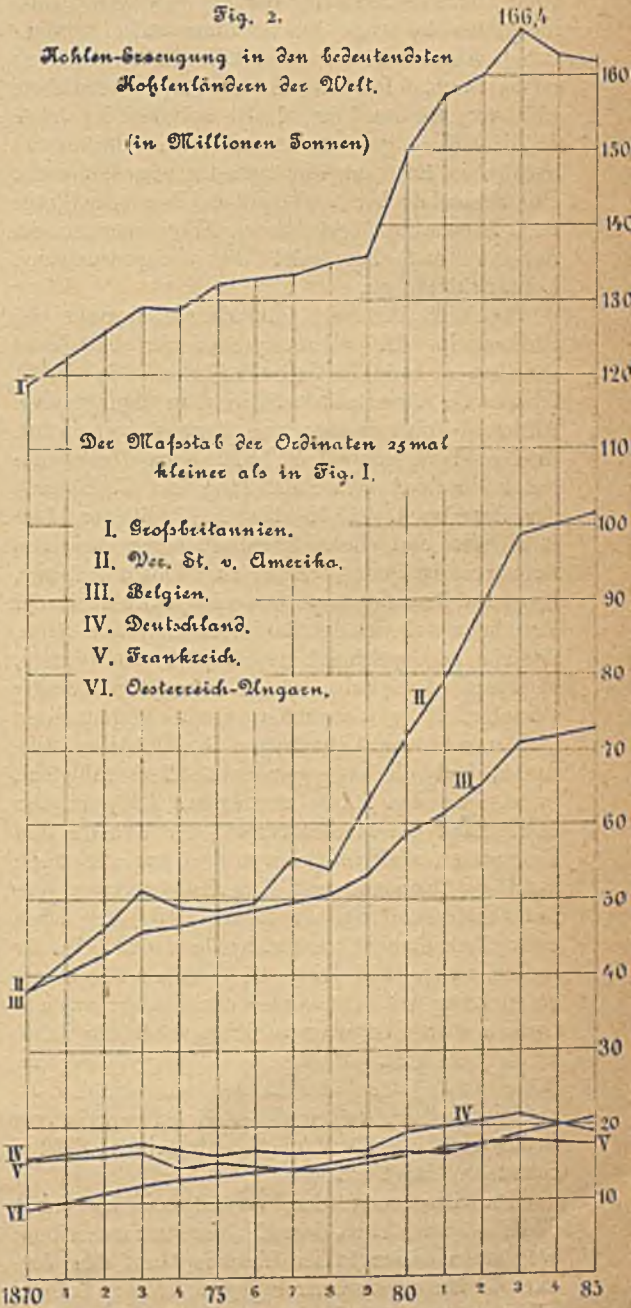 Fig. 2.
Kohlen-Erzeugung in den bedeutendsten
Kohlenländern der Welt.
(in Millionen Tonnen)
166,4
160
150
140
130
120
I
Der Maſsstab der Ordinaten 25mal
kleiner als in Fig. I.
110
100
I. Groſsbritannien.
II. Ver. St. v. Amerika.
III. Belgien.
IV. Deutschland.
V. Frankreich.
VI. Oesterreich-Ungarn.
90
80
II
70
III
60
50
40
II
III
30
20
IV
IV
V
V
10
VI
1870 1 2 3 4 75 6 7 8 9 80 1 2 3 4 85